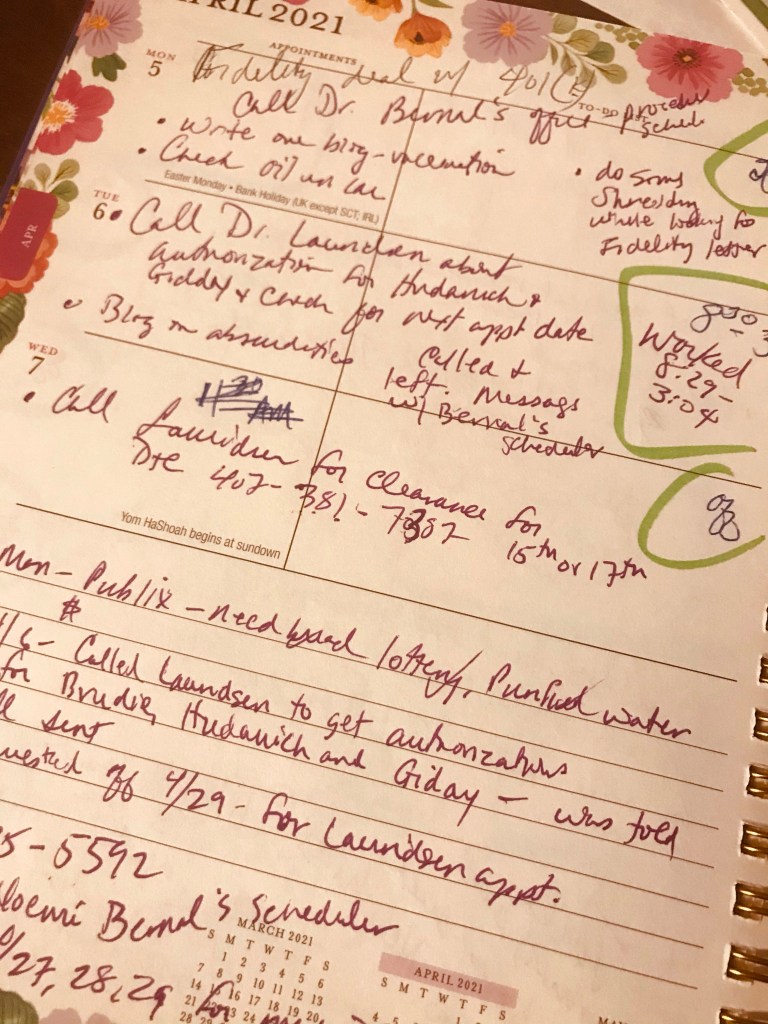 APRIL 2021
APPOINTMENTS
MON
5
Fidelity deal w/ 401(k)
TO-DO
Call Dr. Bernal's office /
• Write one blog-vaccination
• Check oil in car
• do some
Shredding
while looking for
Fidelity letter
Easter Monday • Bank Holiday (UK except SCT, IRL)
APR
TUE
6 • Call Dr. Laundsen about
authorization for Hudanich &
Giddey & check for next appt date
• Blog on absurdities
Called &
left message
w/ Bernal's
scheduler
Worked
8:29-
3:04
WED
7
11:30
AM
• Call Lauridsen for clearance for
15th or 17th
407-381-7387
off
Yom HaShoah begins at sundown
Mon - Publix - need bread lottery, Purified water
$
/6 - Called Laundsen to get authorizations
for Brudie, Hudanich and Giday - was told
sent
uested off 4/29 - for Laundsen appt.
5-5592
loemi Bernal's scheduler
/27, 28, 29 for
MARCH 2021
S M T W T F S
1 2 3 4 5 6
7 8 9 10 11 12 13
14 15 16 17 18 19 20
21 22 23 24
28 29
APRIL 2021
S M T W T F S